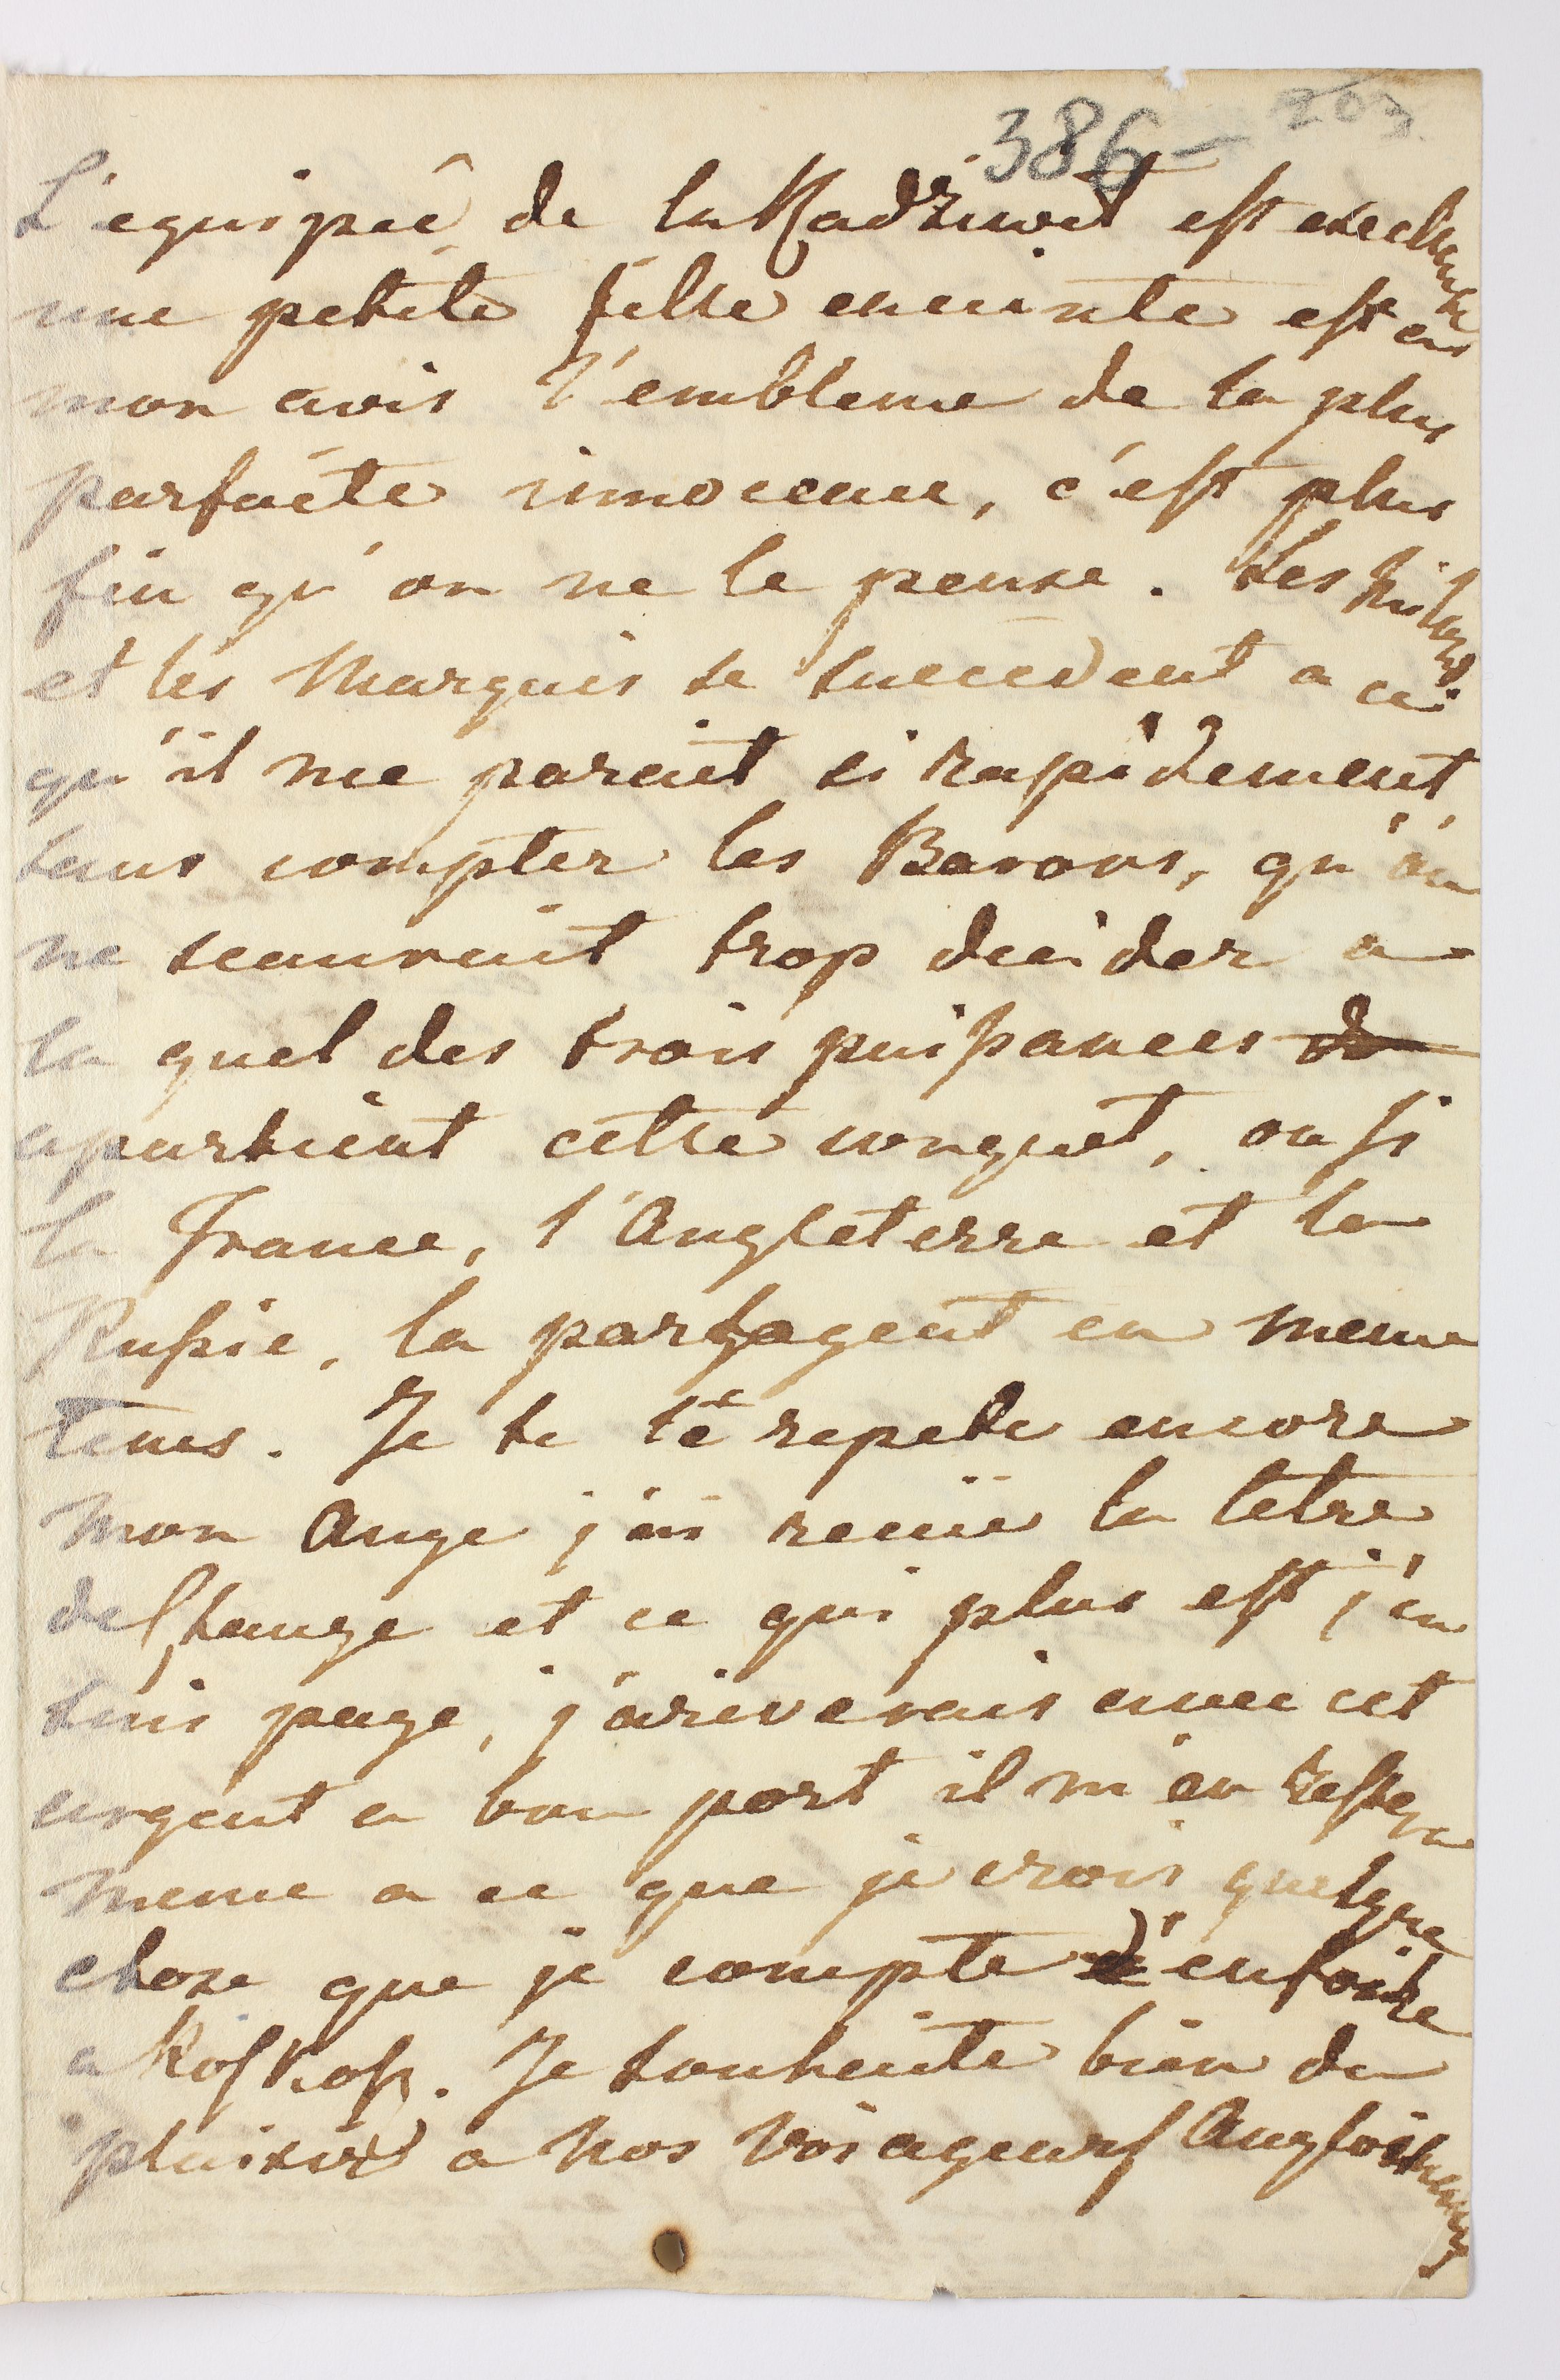 386 — 203
L'equipeé de la Radziwil est execelente
une petite fille enceinte est en
mon avis l'embleme de la plus
parfaite innocence, c'est plus
fin qu'on ne le pense. Les Milords
et les Marquis se succedent a ce
qu'il me parait si rapidement,
sans compter les Barons, qu'on
ne scauroit trop decider a
la quel des trois puissances de
apartient cette conquet, ou si
la France, l'Angleterre et la
Russie, la partagent en meme
tems. Je te le repete encore
mon Ange j'ai recue la letre
de Stange et ce qui plus est j'en
suis paye, j'ariverais avec cet
argent a bon port il m'en restera
meme a ce que je crois quelque
chose que je compte d'enfoire
a . Je souheite bien du
plaisir a nos voiageurs Anglois